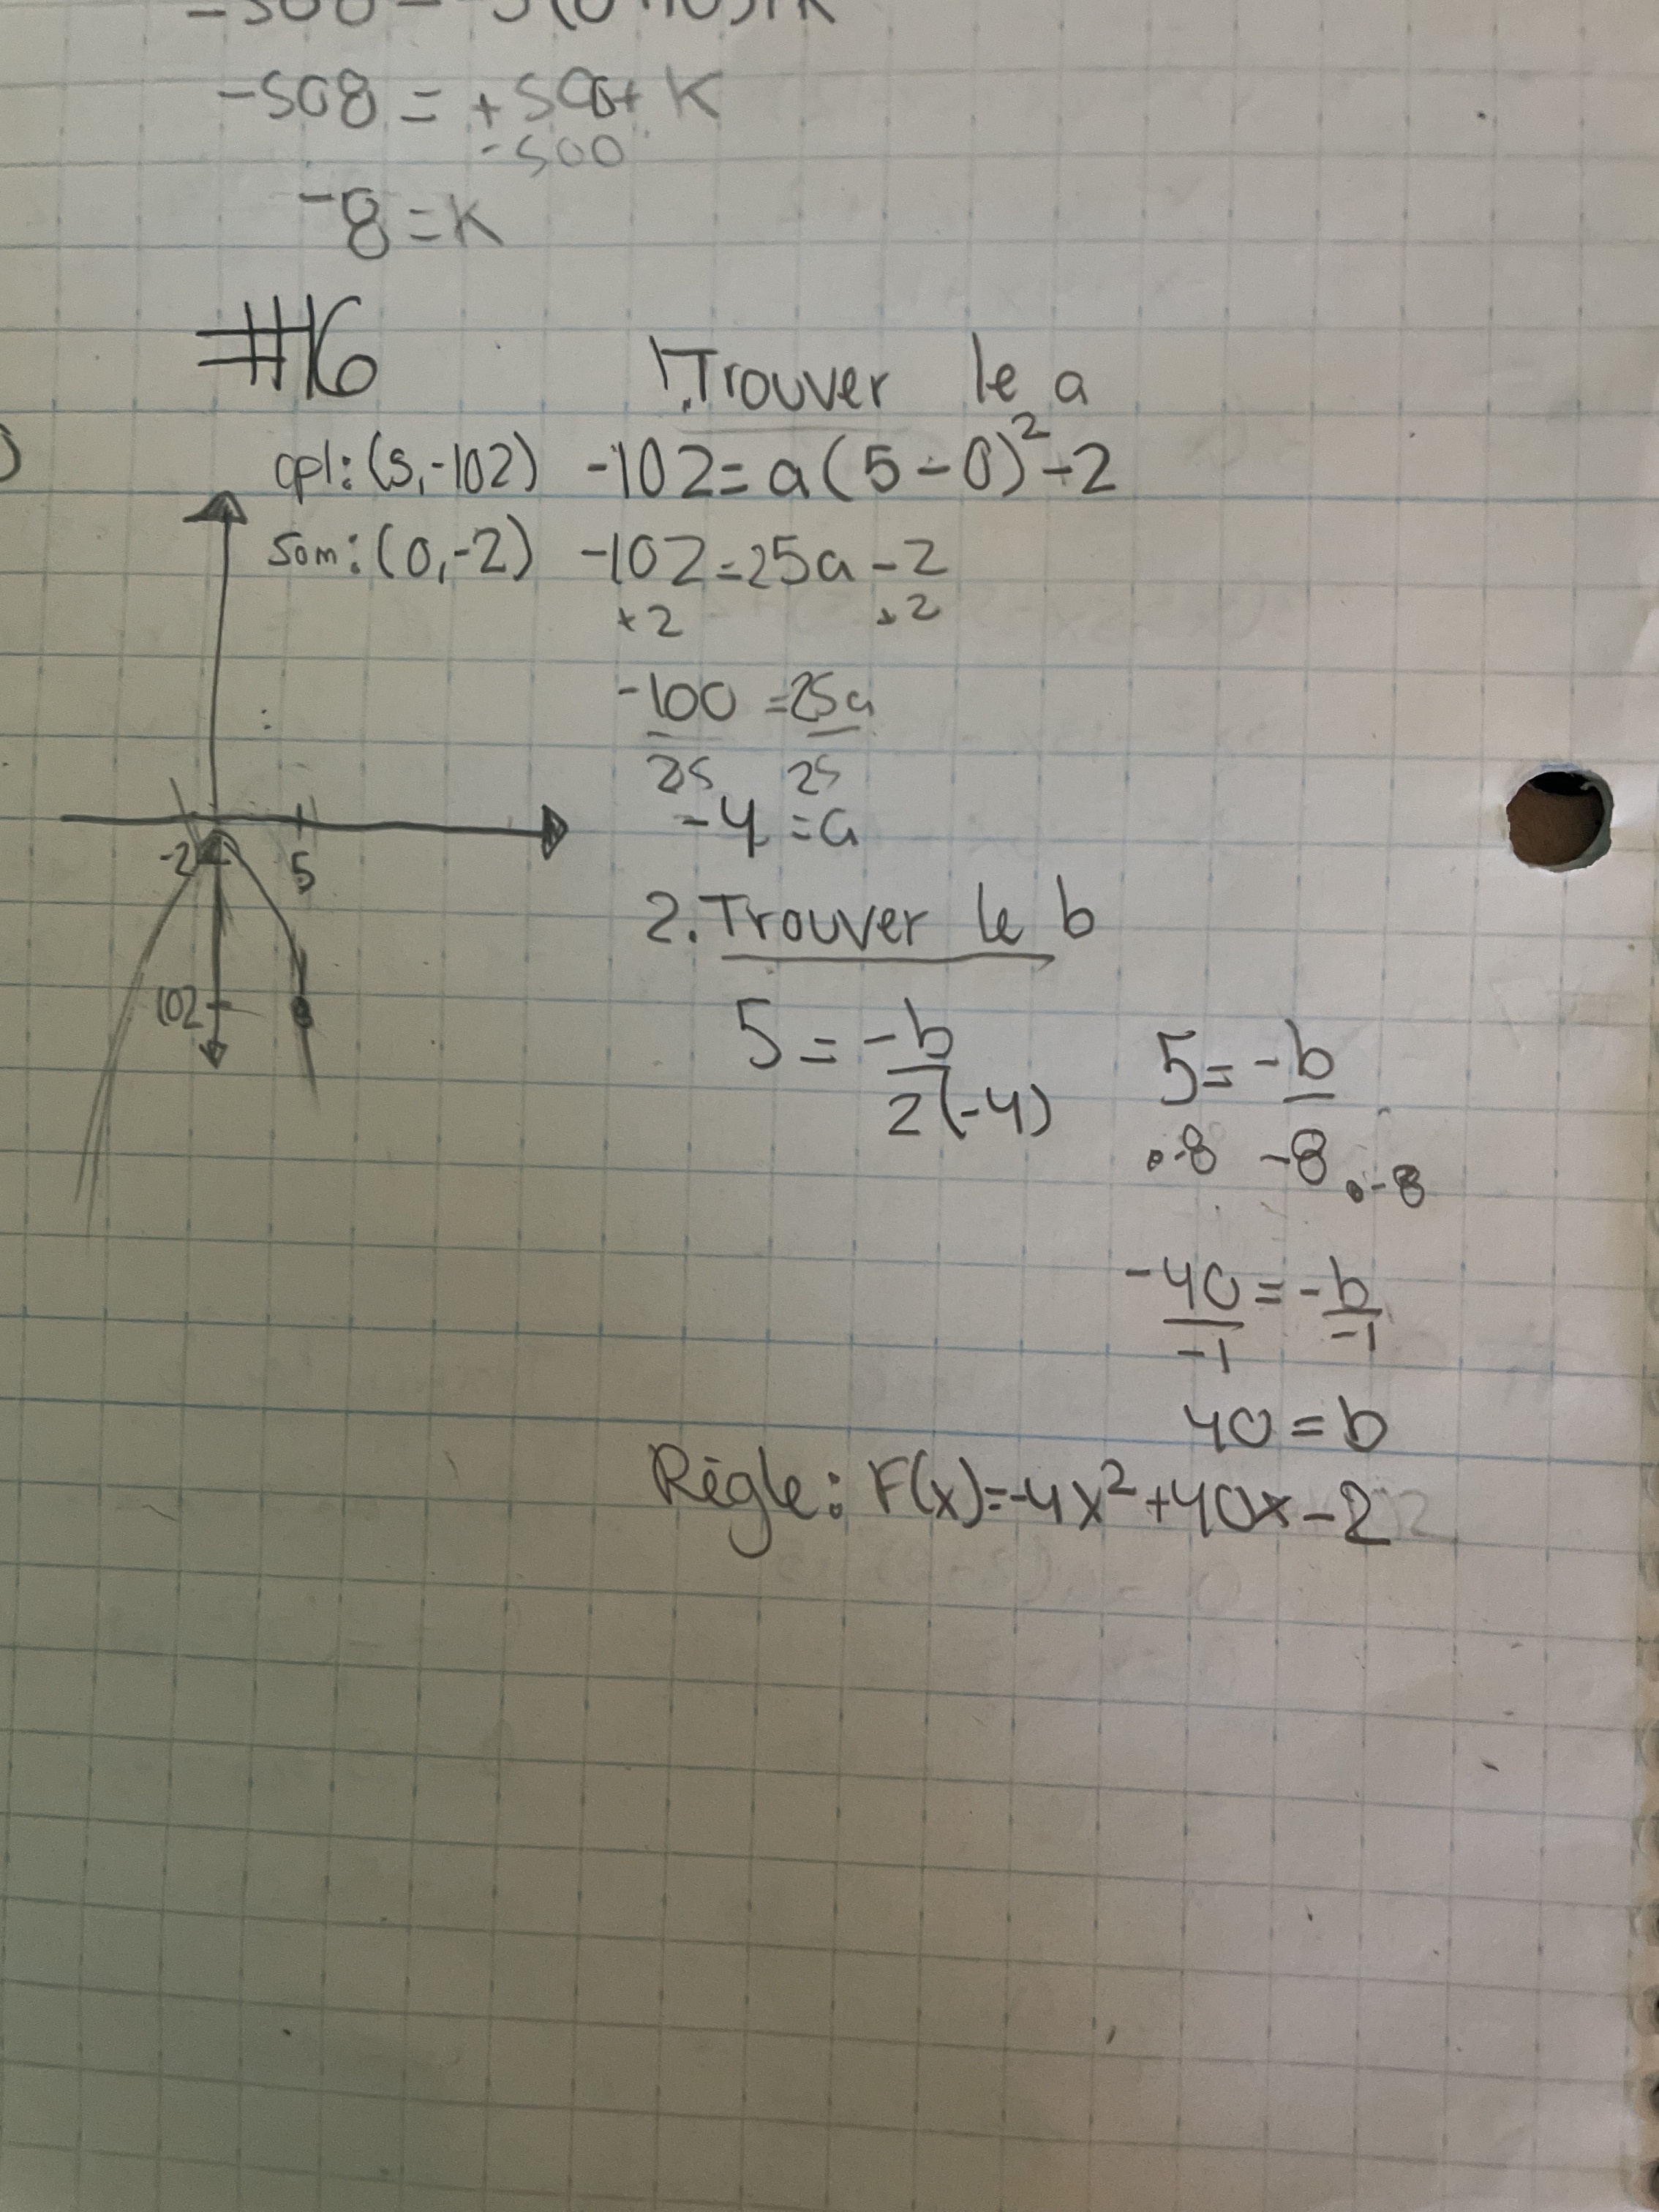 -508 = +500+ K
-500
-8 = K
#16
1. Trouver le a
cpl: (5,-102) -102 = a(5-0)²-2
Som: (0,-2) -102=25a-2
+2 +2
-100 = 25a
25 25
-4 = a
-2 5
2. Trouver le b
102
5 = -b 5 = -b
2(-4) •-8 -8 •-8
-40 = -b
-1 -1
40 = b
Règle: F(x)=-4x²+40x-2